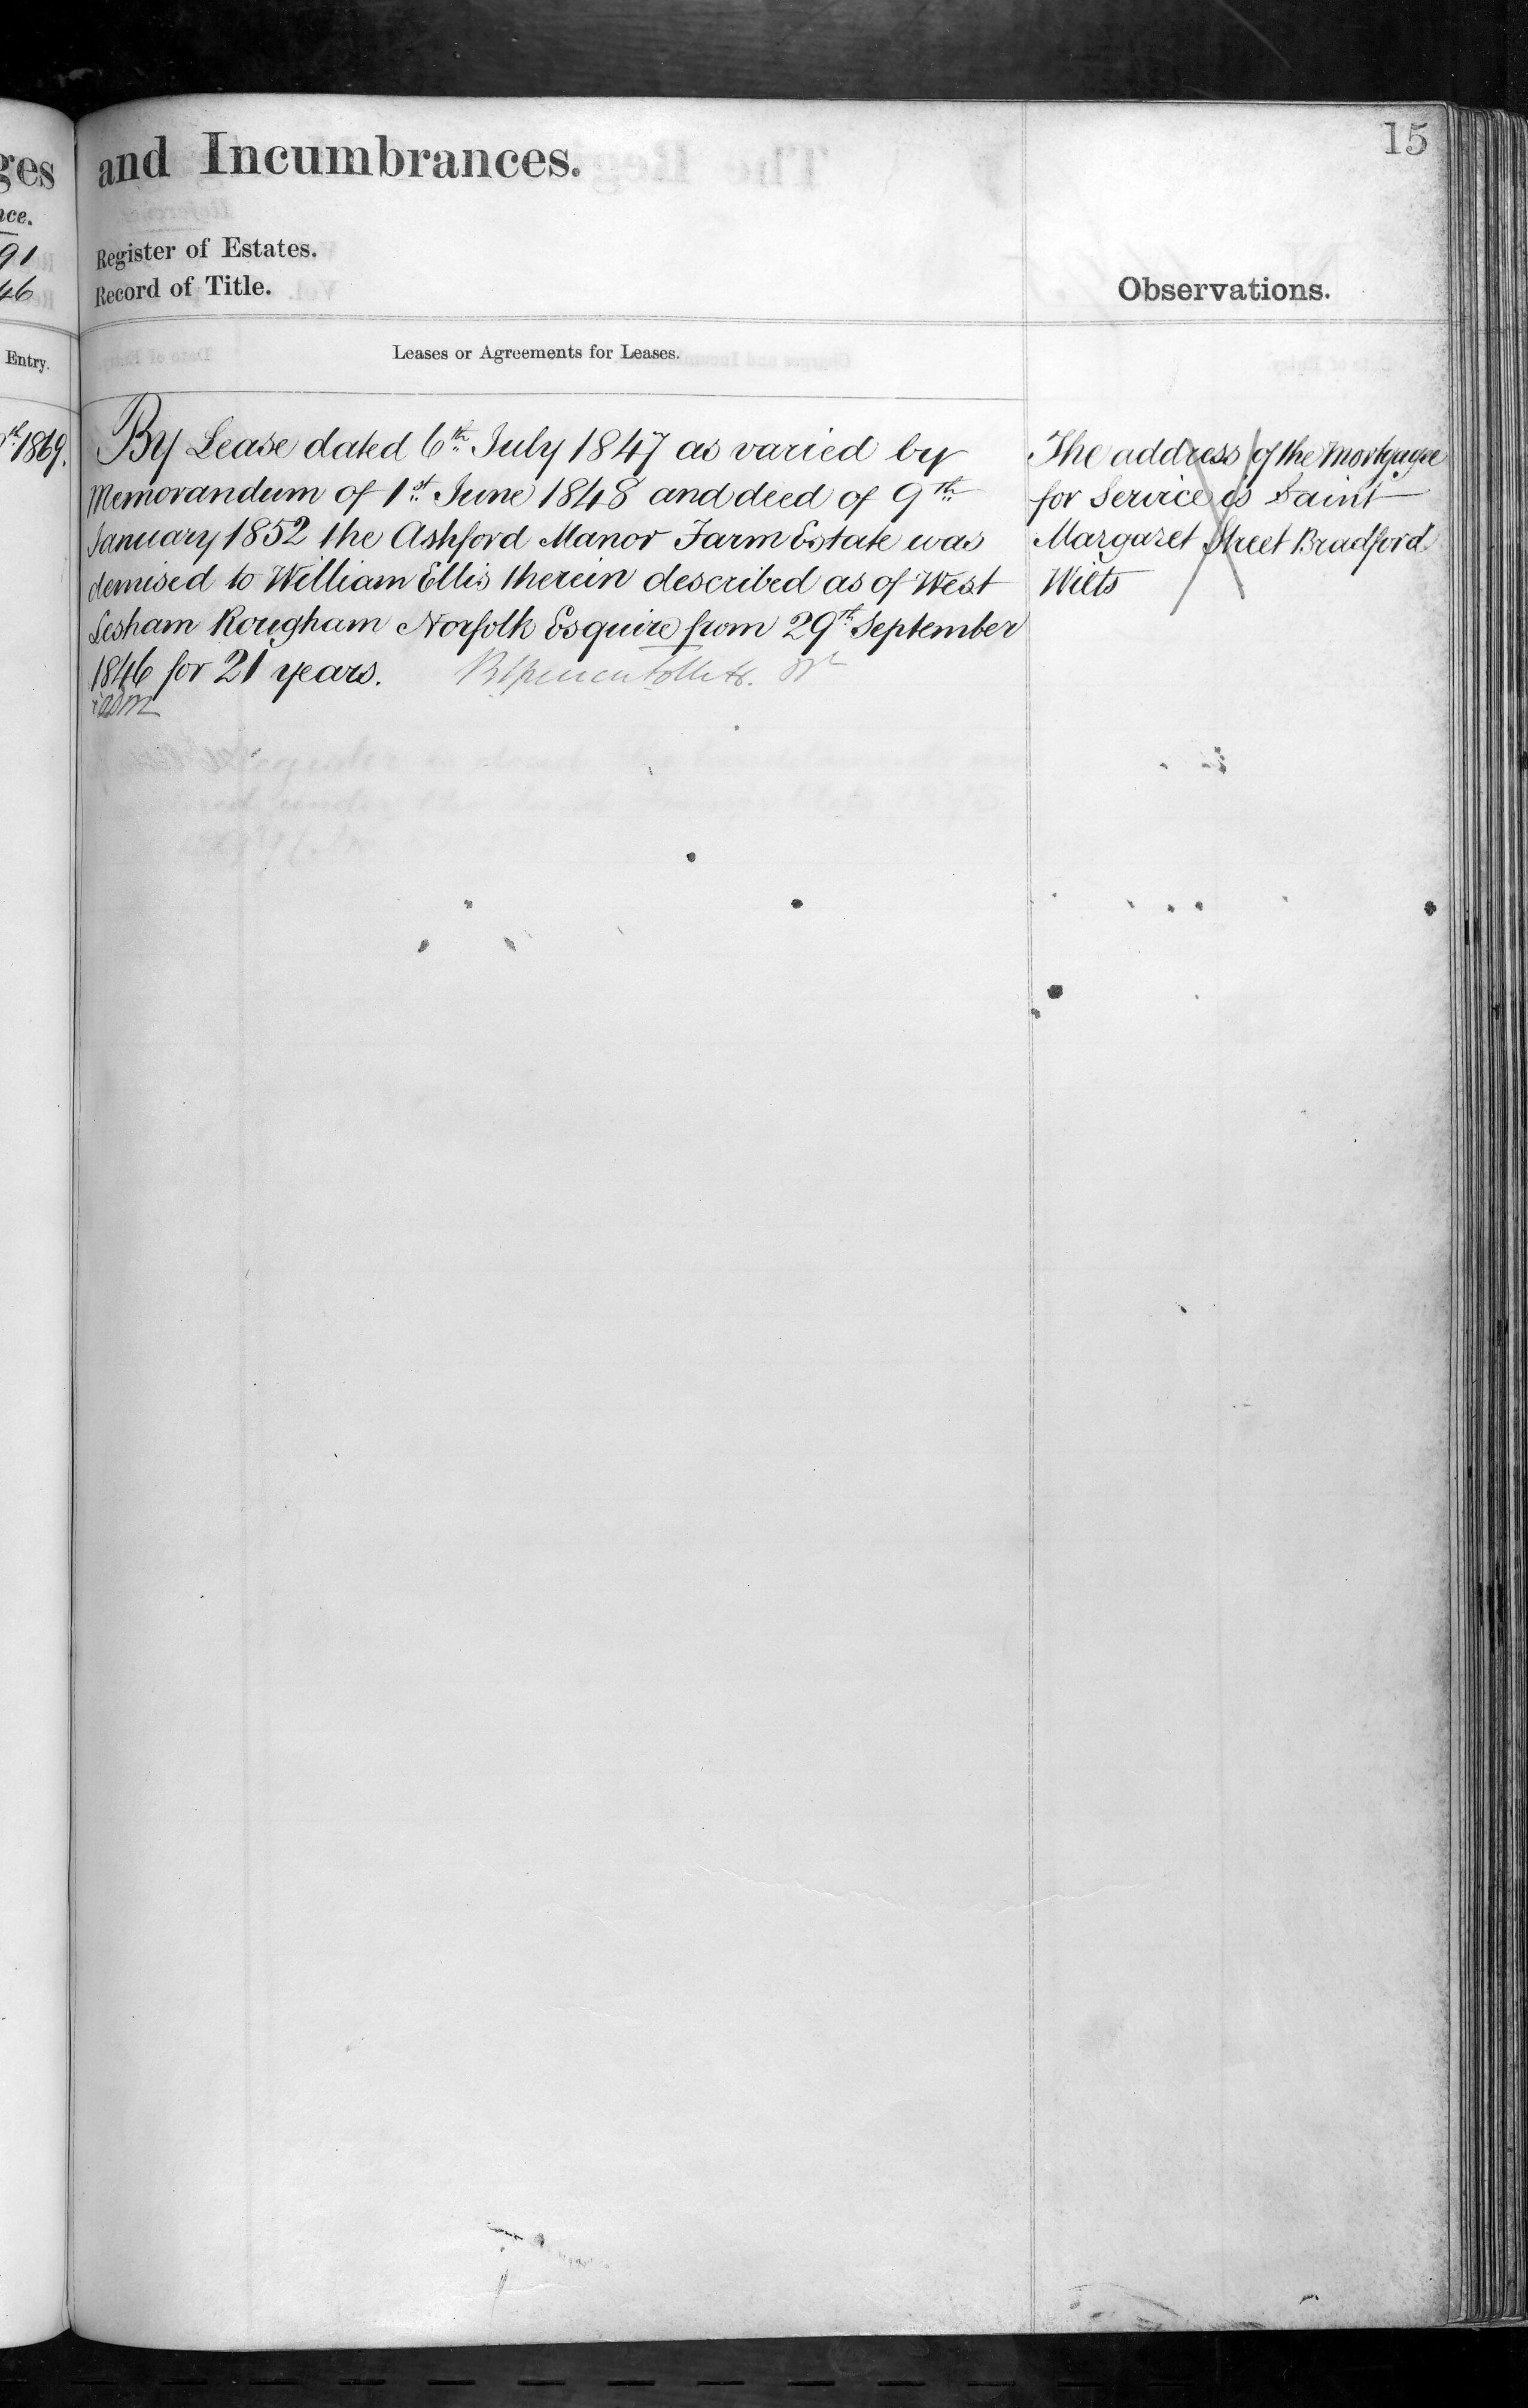 15
and Incumbrances.
Register of Estates.
Record of Title.
Observations.
Leases or Agreements for Leases.
By Lease dated 6th July 1847 as varied by
Memorandum of 1st June 1848 and deed of 9th
January 1852 the Ashford Manor Farm Estate was
demised to William Ellis therein described as of West
Lesham Rougham Norfolk Esquire from 29th September
1846 for 21 years.
The address of the mortgagee
for Service is Saint
Margaret Street Bradford
Wilts
ges
nce.
91
46
Entry.
th 1869.